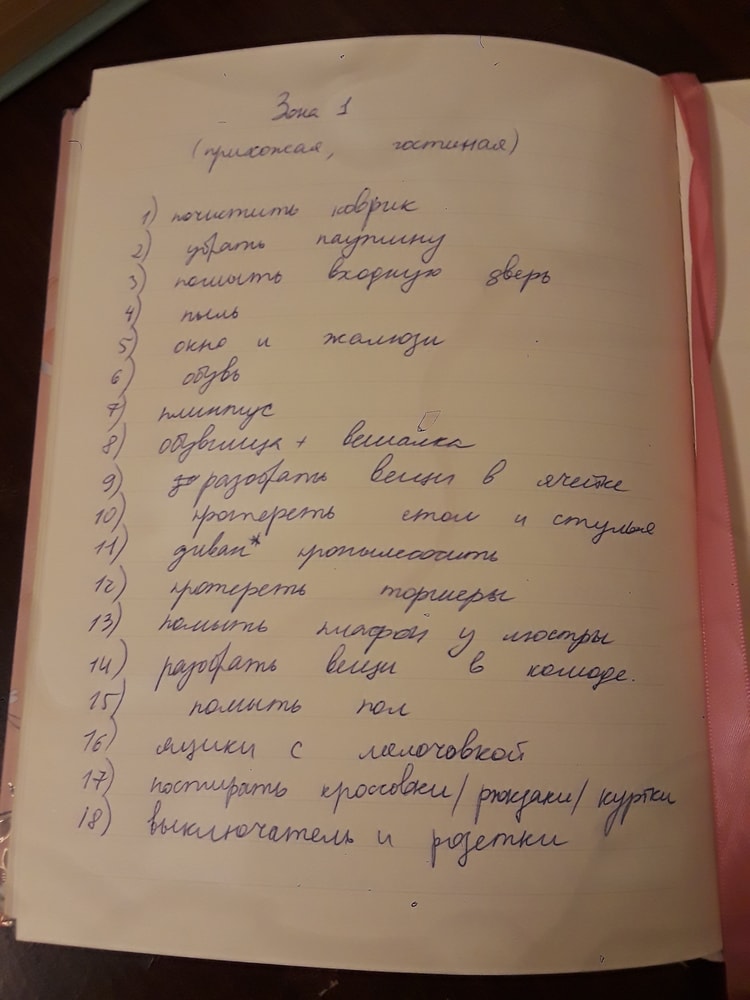 Зона 1
(прихожая, гостиная)
1) почистить коврик
2) убрать паутину
3) помыть входную дверь
4) пыль
5) окно и жалюзи
6) обувь
7) плинтус
8) обувница + вешалка
9) разобрать вещи в ячейке
10) протереть стол и стулья
11) диван* пропылесосить
12) протереть торшеры
13) помыть плафон у люстры
14) разобрать вещи в комоде.
15) помыть пол
16) ящики с мелочовкой
17) постирать кроссовки/рюкзаки/куртки
18) выключатель и розетки